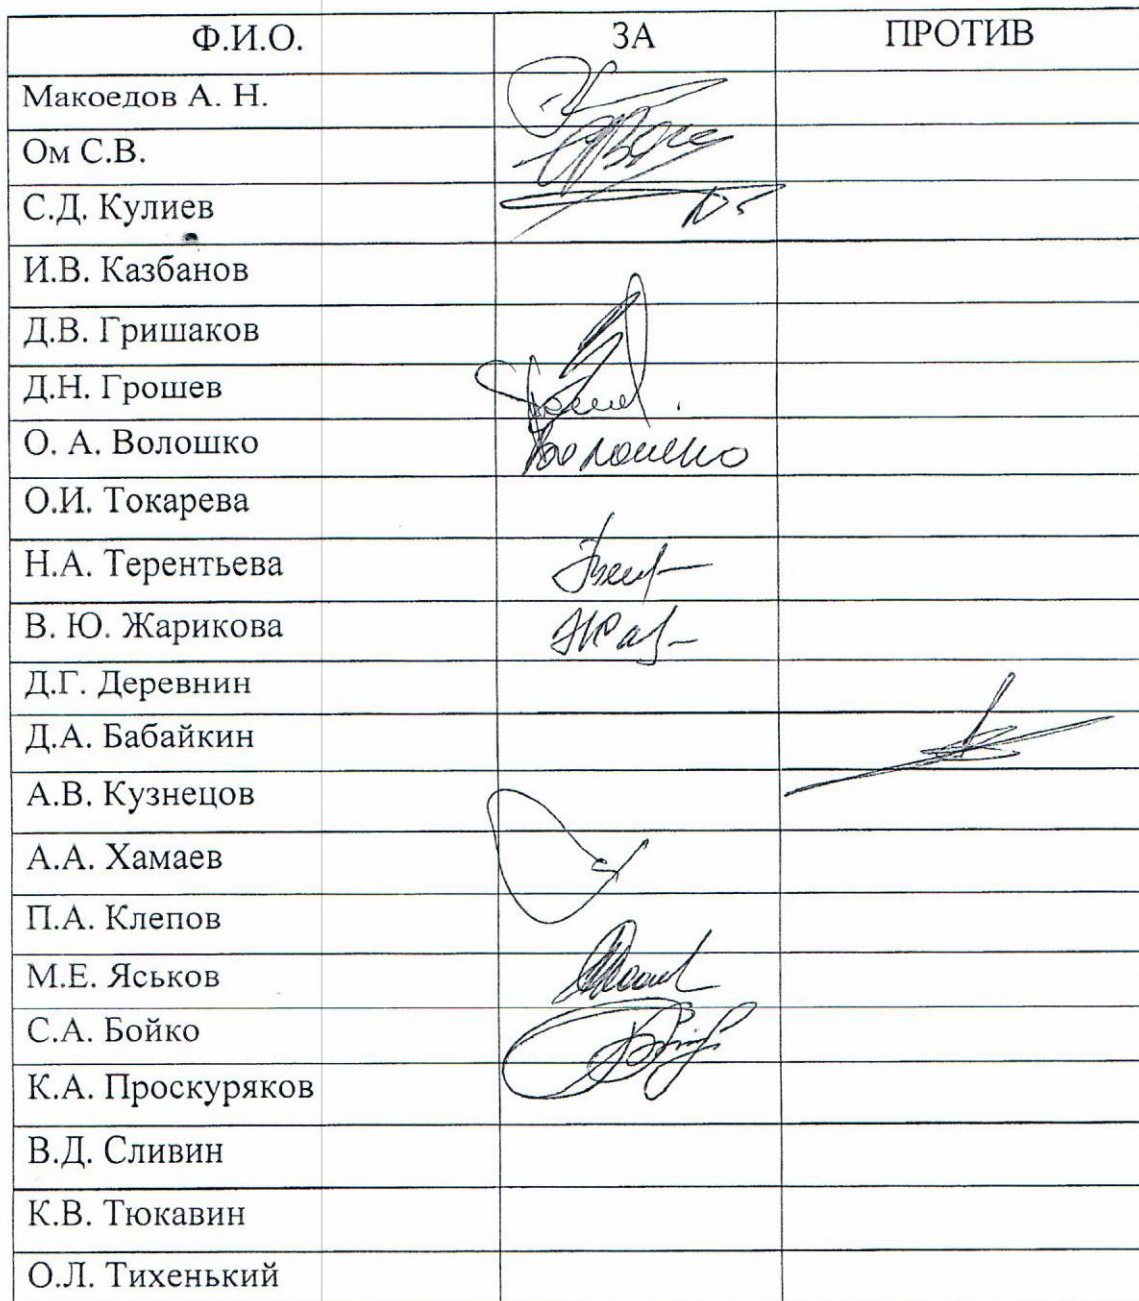 Ф.И.О. ЗА ПРОТИВ
Макоедов А. Н.
Ом С.В.
С.Д. Кулиев
И.В. Казбанов
Д.В. Гришаков
Д.Н. Грошев
О. А. Волошко Волошко
О.И. Токарева
Н.А. Терентьева
В. Ю. Жарикова
Д.Г. Деревнин
Д.А. Бабайкин
А.В. Кузнецов
А.А. Хамаев
П.А. Клепов
М.Е. Яськов
С.А. Бойко
К.А. Проскуряков
В.Д. Сливин
К.В. Тюкавин
О.Л. Тихенький